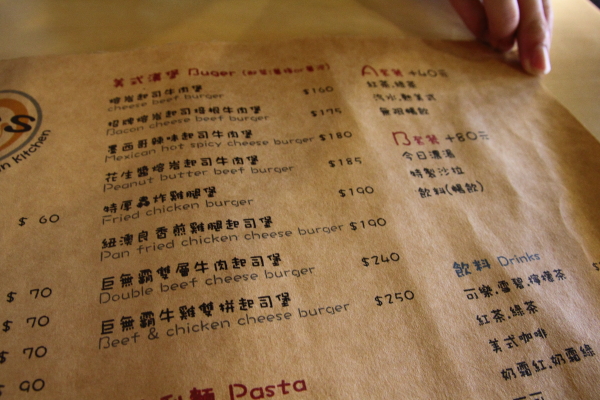 美式漢堡 Buger
熔岩起司牛肉堡 $160
cheese beef burger
招牌熔岩起司培根牛肉堡 $175
Bacon cheese beef burger
墨西哥辣味起司牛肉堡 $180
Mexican hot spicy cheese burger
花生醬熔岩起司牛肉堡 $185
Peanut butter beef burger
特厚轟炸雞腿堡 $190
Fried chicken burger
紐澳良香煎雞腿起司堡 $190
Pan fried chicken cheese burger
巨無霸雙層牛肉起司堡 $240
Double beef cheese burger
巨無霸牛雞雙拼起司堡 $250
Beef & chicken cheese burger
Pasta
A套餐 +40元
紅茶.綠茶
冷冰.熱美式
無限暢飲
B套餐 +80元
今日濃湯
特製沙拉
飲料(暢飲)
飲料 Drinks
可樂.雪碧.檸檬茶
紅茶.綠茶
美式咖啡
奶霜紅.奶霜綠
Kitchen
$ 60
$ 70
$ 70
$ 70
$ 90